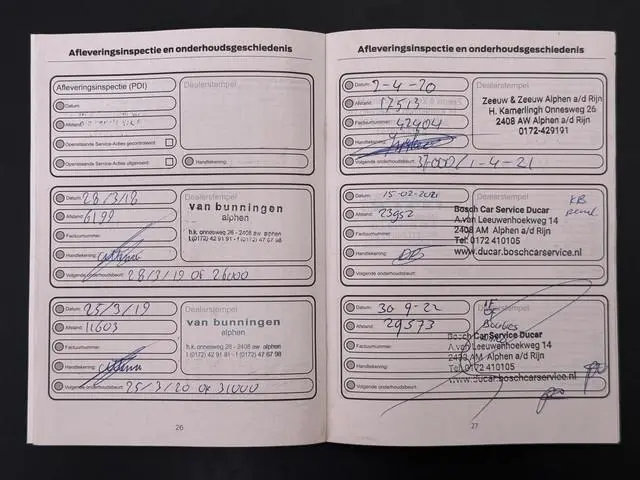 Afleveringsinspectie en onderhoudsgeschiedenis
Afleveringsinspectie (PDI)
Datum:
Afstand:
Openstaande Service-Acties gecontroleerd:
Openstaande Service-Acties uitgevoerd:
Dealerstempel
Handtekening:
Datum: 28/3/18
Afstand: 6199
Factuurnummer:
Handtekening:
Volgende onderhoudsbeurt: 28/3/19 OF 26000
Dealerstempel
van bunningen
alphen
h.k. onnesweg 26 - 2408 aw alphen
t.(0172) 42 91 91 - f.(0172) 47 67 98
Datum: 25/3/19
Afstand: 11603
Factuurnummer:
Handtekening:
Volgende onderhoudsbeurt: 25/3/20 OF 31000
Dealerstempel
van bunningen
alphen
h.k. onnesweg 26 - 2408 aw alphen
t.(0172) 42 91 91 - f.(0172) 47 67 98
26
Afleveringsinspectie en onderhoudsgeschiedenis
Datum: 2-4-20
Afstand: 17513
Factuurnummer: 42404
Handtekening:
Volgende onderhoudsbeurt: 37000/1-4-21
Dealerstempel
Zeeuw & Zeeuw Alphen a/d Rijn
H. Kamerlingh Onnesweg 26
2408 AW Alphen a/d Rijn
0172-429191
Datum: 15-02-2021
Afstand: 23952
Factuurnummer:
Handtekening:
Volgende onderhoudsbeurt:
Dealerstempel
KB
Bosch Car Service Ducar
A.van Leeuwenhoekweg 14
2408 AM Alphen a/d Rijn
Tel: 0172 410105
www.ducar.boschcarservice.nl
Datum: 30-9-22
Afstand: 29573
Factuurnummer:
Handtekening:
Volgende onderhoudsbeurt:
Dealerstempel
Bougies
Bosch Car Service Ducar
A.van Leeuwenhoekweg 14
2408 AM Alphen a/d Rijn
Tel: 0172 410105
www.ducar.boschcarservice.nl
27